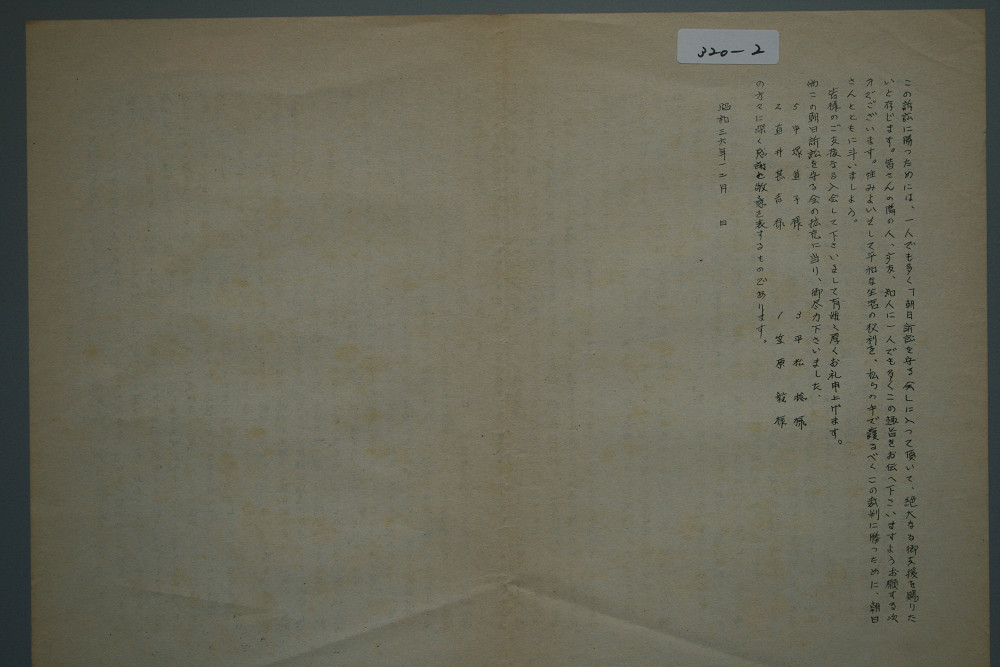 320-2
この訴訟に勝つためには、一人でも多く「朝日訴訟を守る会」に入って頂いて、絶大なる御支援を賜りた
いと存じます。皆さんの隣の人、学友、知人に一人でも多くこの趣旨をお伝へ下さいますようお願する次
才でございます。住みよいそして平和な生活の权利を、私らの手で護るべくこの裁判に勝つために、朝日
さんとともに斗いましょう。
皆様のご支援なる入会して下さいまして有難く厚くお礼申上げます。
他この朝日訴訟を守る会の拡充に当り、御尽力下さいました、
5 甲塚 子様 3 平松 様
2 直井甚吉様 1 笠原 敏様
の方々に深く感謝と敬意を表するものであります。
昭和三六年一二月 日